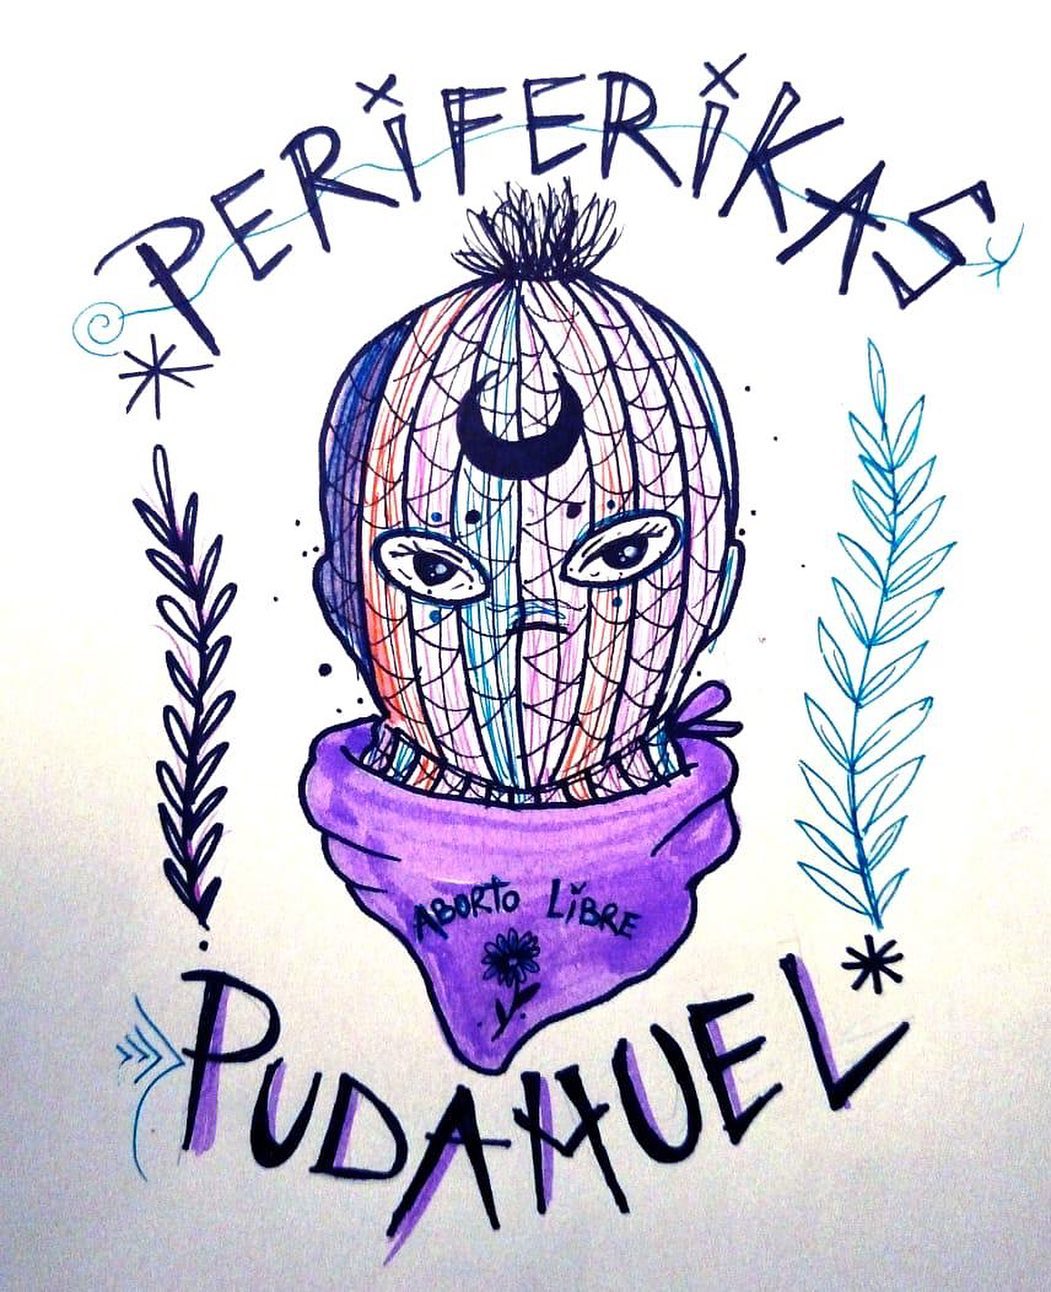 PERIFERIKAS
ABORTO LIBRE
PUDAHUEL